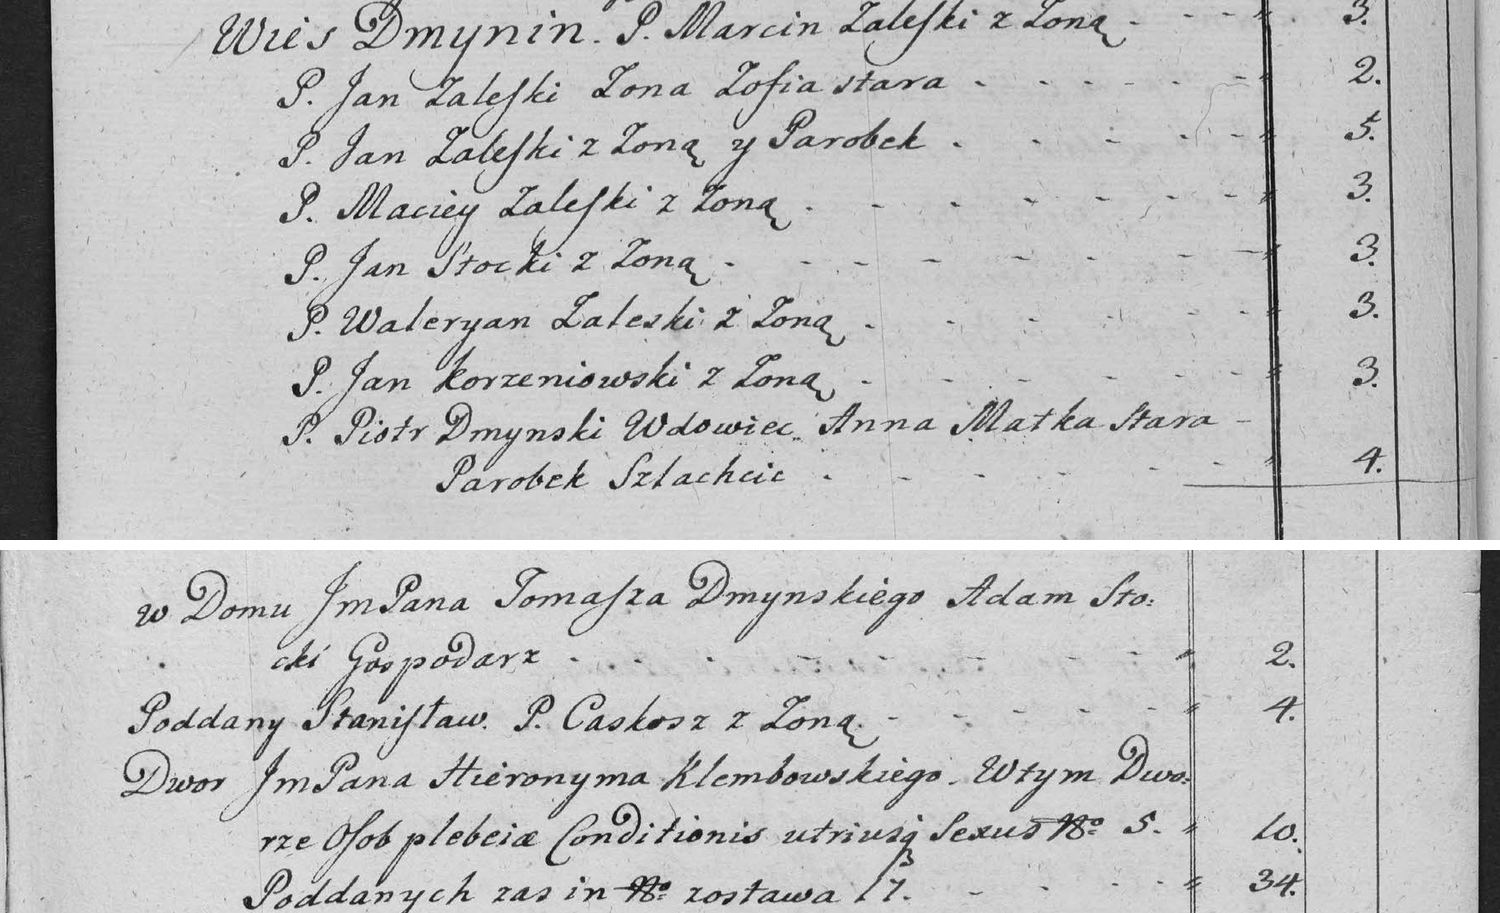 Wies Dmynin. P. Marcin Zaleski z Zoną - - - - " 3.
P. Jan Zaleski Zona Zofia stara - - - - - - " 2.
P. Jan Zaleski z Zoną y Parobek . - - - - " 5.
P. Maciey Zaleski z Zoną . - - - - - - " 3.
P. Jan Stocki z Zoną - - - - - - - - " 3.
P. Waleryan Zaleski z Zoną - - - - - - " 3.
P. Jan Korzeniowski z Zoną - - - - - - " 3.
P. Piotr Dmynski Wdowiec. Anna Matka Stara -
Parobek Szlachcic . - - - - - - " 4.
w Domu JmPana Tomasza Dmynskiego Adam Sto:
cki Gospodarz - - - - - - - - " 2.
Poddany Stanisław. P. Caskosz z Zoną - - - - - " 4.
Dwor JmPana Hieronyma Klembowskiego. Wtym Dwo:
rze Osob plebeiæ Conditionis utriusq Sexus No 5. " 10.
Poddanych zas in No zostawa 17. - - - - " 34.